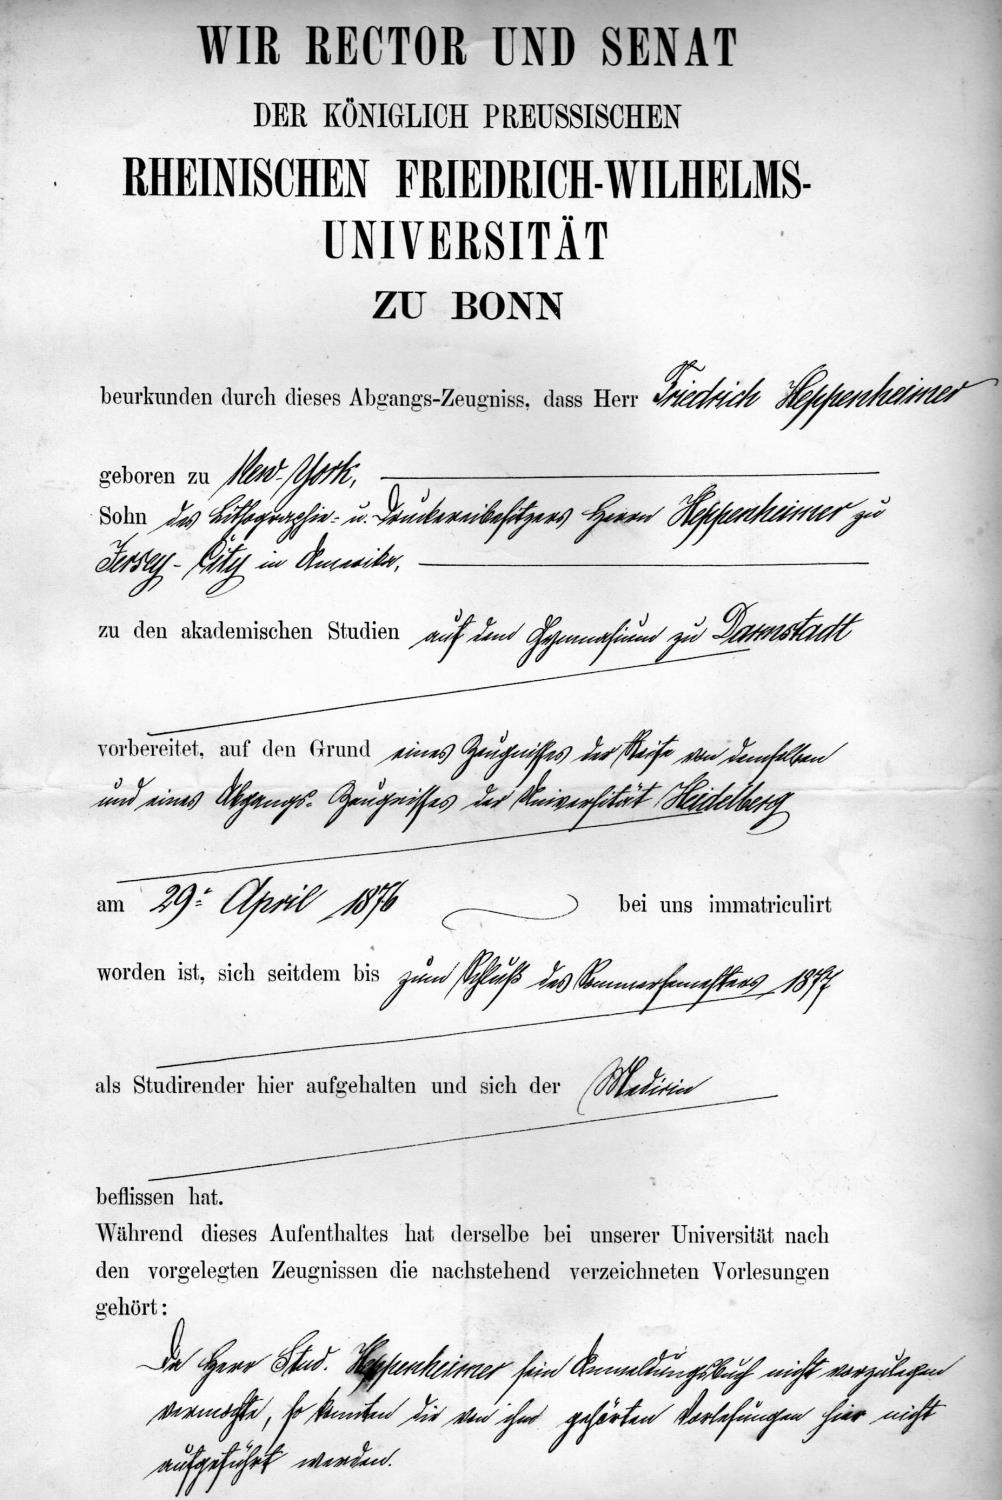 WIR RECTOR UND SENAT
DER KÖNIGLICH PREUSSISCHEN
RHEINISCHEN FRIEDRICH-WILHELMS-
UNIVERSITÄT
ZU BONN
beurkunden durch dieses Abgangs-Zeugniss, dass Herr Friedrich Heppenheimer
geboren zu New-York,
Sohn des Lithographie- u. Druckereibesitzers Herrn Heppenheimer zu
Jersey-City in Amerika,
zu den akademischen Studien auf dem Gymnasium zu Darmstadt
vorbereitet, auf den Grund eines Zeugnisses der Reife von demselben
und eines Abgangs-Zeugnisses der Universität Heidelberg
am 29. April 1876 bei uns immatriculirt
worden ist, sich seitdem bis zum Schluß des Sommersemesters 1877
als Studirender hier aufgehalten und sich der Medicin
beflissen hat.
Während dieses Aufenthaltes hat derselbe bei unserer Universität nach
den vorgelegten Zeugnissen die nachstehend verzeichneten Vorlesungen
gehört:
Da Herr Stud. Heppenheimer sein Anmeldungsbuch nicht vorzulegen
vermochte, so konnten die von ihm gehörten Vorlesungen hier nicht
aufgeführt werden.